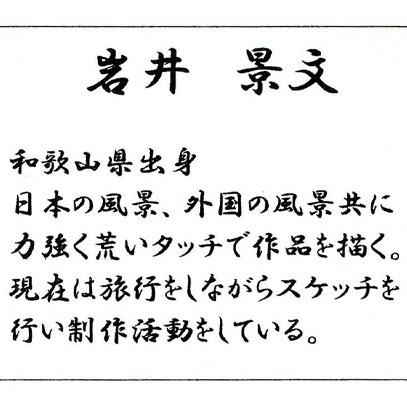 岩井　景文
和歌山県出身
日本の風景、外国の風景共に
力強く荒いタッチで作品を描く。
現在は旅行をしながらスケッチを
行い制作活動をしている。